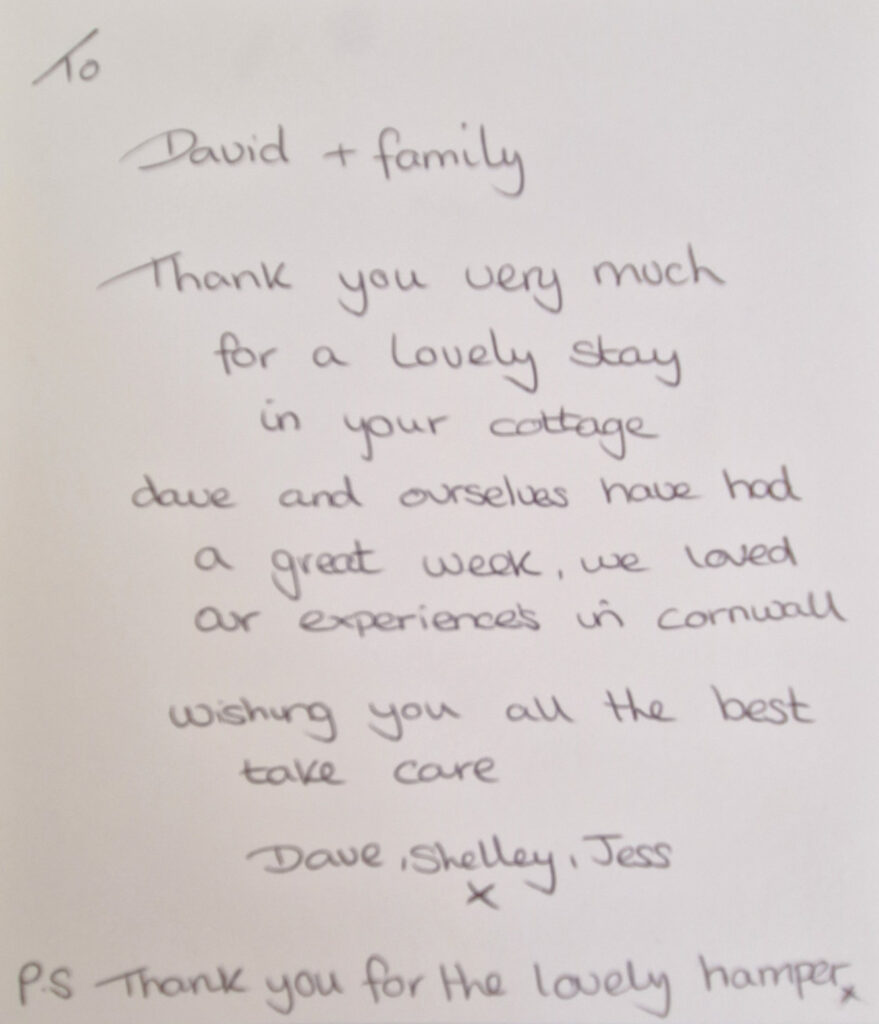 To
David + family
Thank you very much
for a lovely stay
in your cottage
dave and ourselves have had
a great week, we loved
our experiences in cornwall
wishing you all the best
take care
Dave, Shelley, Jess
x
P.S Thank you for the lovely hamper x